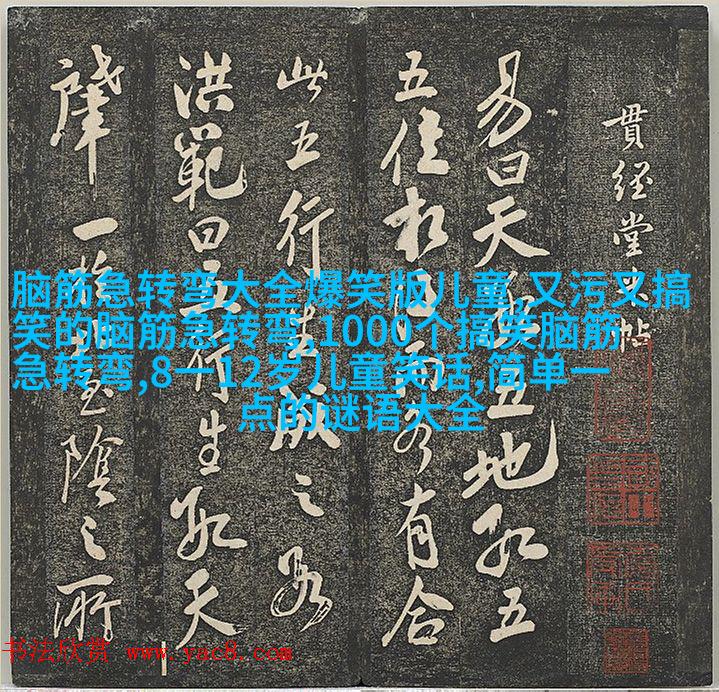 貫經堂米帖
易曰天數五地數五
五位相得而各有合
此五行生之數
洪範曰五行生數天
肇一陰之所
脑筋急转弯大全爆笑版儿童,又污又搞
笑的脑筋急转弯,1000个搞笑脑筋
急转弯,8一12岁儿童笑话,简单一
点的谜语大全
书法欣赏 www.yac8.com